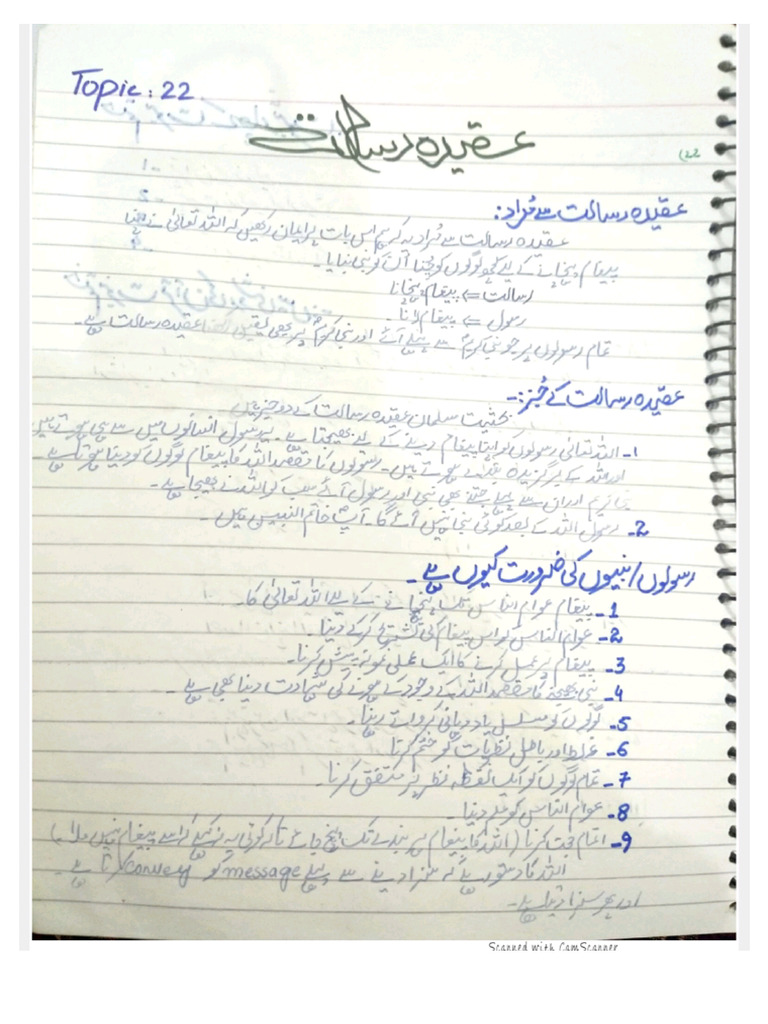 Topic: 22
عقیدہ رسالت
(22
عقیدہ رسالت سے مُراد:
عقیدہ رسالت سے مُراد یہ کہ ہم اس بات پر ایمان رکھیں کہ اللہ تعالیٰ نے اپنا
پیغام پہنچانے کے لیے کچھ لوگوں کو چُنا اُن کو نبی بنایا۔
رسالت ⇐ پیغام پہنچانا
رسول ⇐ پیغام لانا۔
تمام رسولوں پر جو نبی کریمؐ سے پہلے آئے اور نبی کریمؐ پر بھی یقین عقیدہ رسالت ہے۔
عقیدہ رسالت کے جُز:-
بحثیت مسلمان عقیدہ رسالت کے دو جز ہیں
1- اللہ تعالیٰ رسولوں کو اپنا پیغام دینے کے لیے بھیجتا ہے۔ یہ رسول انسانوں میں سے ہی ہوتے ہیں
اور اللہ کے برگزیدہ بندے ہوتے ہیں۔ رسولوں کا مقصد اللہ کا پیغام لوگوں کو دینا ہوتا ہے
اور ان سے پہلے جتنے بھی نبی اور رسول آئے سب کو اللہ نے بھیجا ہے۔
2- رسول اللہ کے بعد کوئی نبی نہیں آئے گا۔ آپؐ خاتم النبیین ہیں۔
رسولوں/نبیوں کی ضرورت کیوں ہے۔
1- پیغام عوام الناس تک پہنچانے کے لیے اللہ تعالیٰ کا۔
2- عوام الناس کو اس پیغام کی تشریح کرکے دینا۔
3- پیغام پر عمل کرنے کا ایک عملی نمونہ پیش کرنا۔
4- نبی بھیجنے کا مقصد اللہ کے وجود کے ہونے کی شہادت دینا بھی ہے۔
5- لوگوں کو مسلسل یاد دہانی کرواتے رہنا۔
6- غلط اور باطل نظریات کو ختم کرنا
7- تمام لوگوں کو ایک نقطہ نظر پر متفق کرنا۔
8- عوام الناس کو علم دینا۔
9- اتمام حجت کرنا (اللہ کا پیغام ہر بندے تک پہنچ جائے تاکہ کوئی یہ نہ کہے کہ اسے پیغام نہیں ملا۔)
اللہ کا دستور ہے کہ سزا دینے سے پہلے message کو convey کرتا ہے۔
اور پھر سزا دیتا ہے۔
Scanned with CamScanner